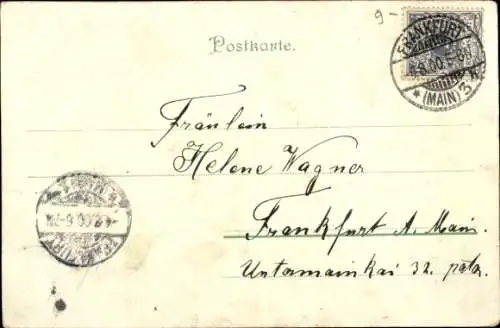 9-
Postkarte.
FRANKFURT
(MAIN) 3
Fräulein
Helene Wagner
Frankfurt A. Main.
Untermainkai 32.